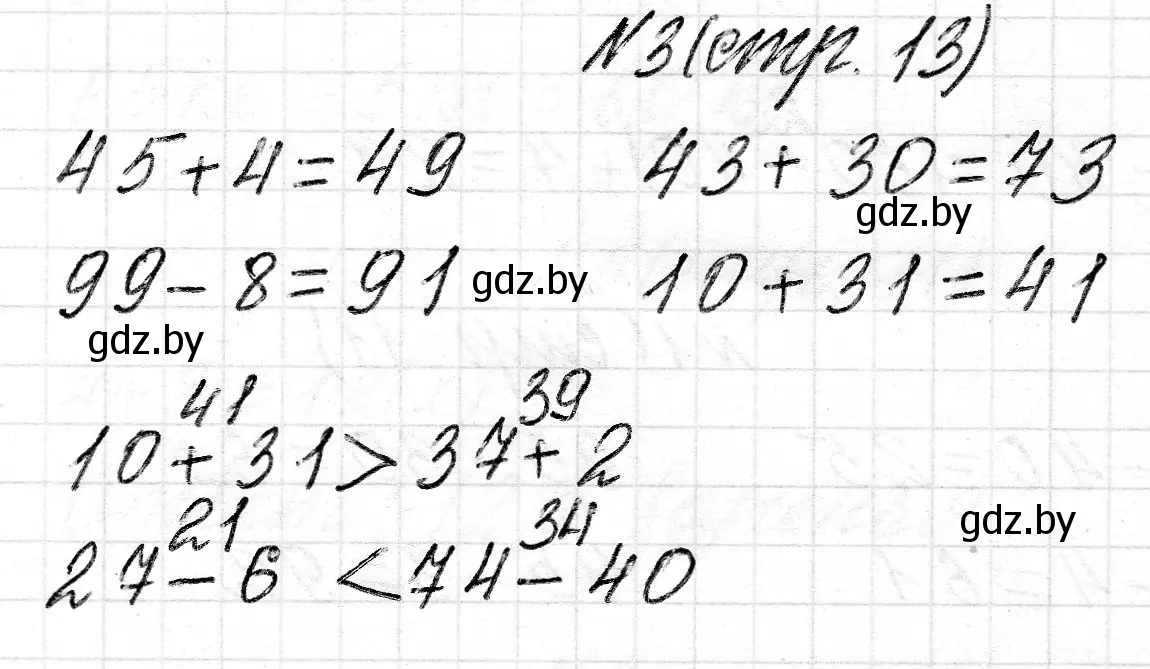 N3 (стр. 13)
45+4=49 43+30=73
gdz.by
99-8=91 gdz.by 10+31=41
gdz.by
41 39
10+31>37+2
21 34 gdz.by
27-6 <74-40